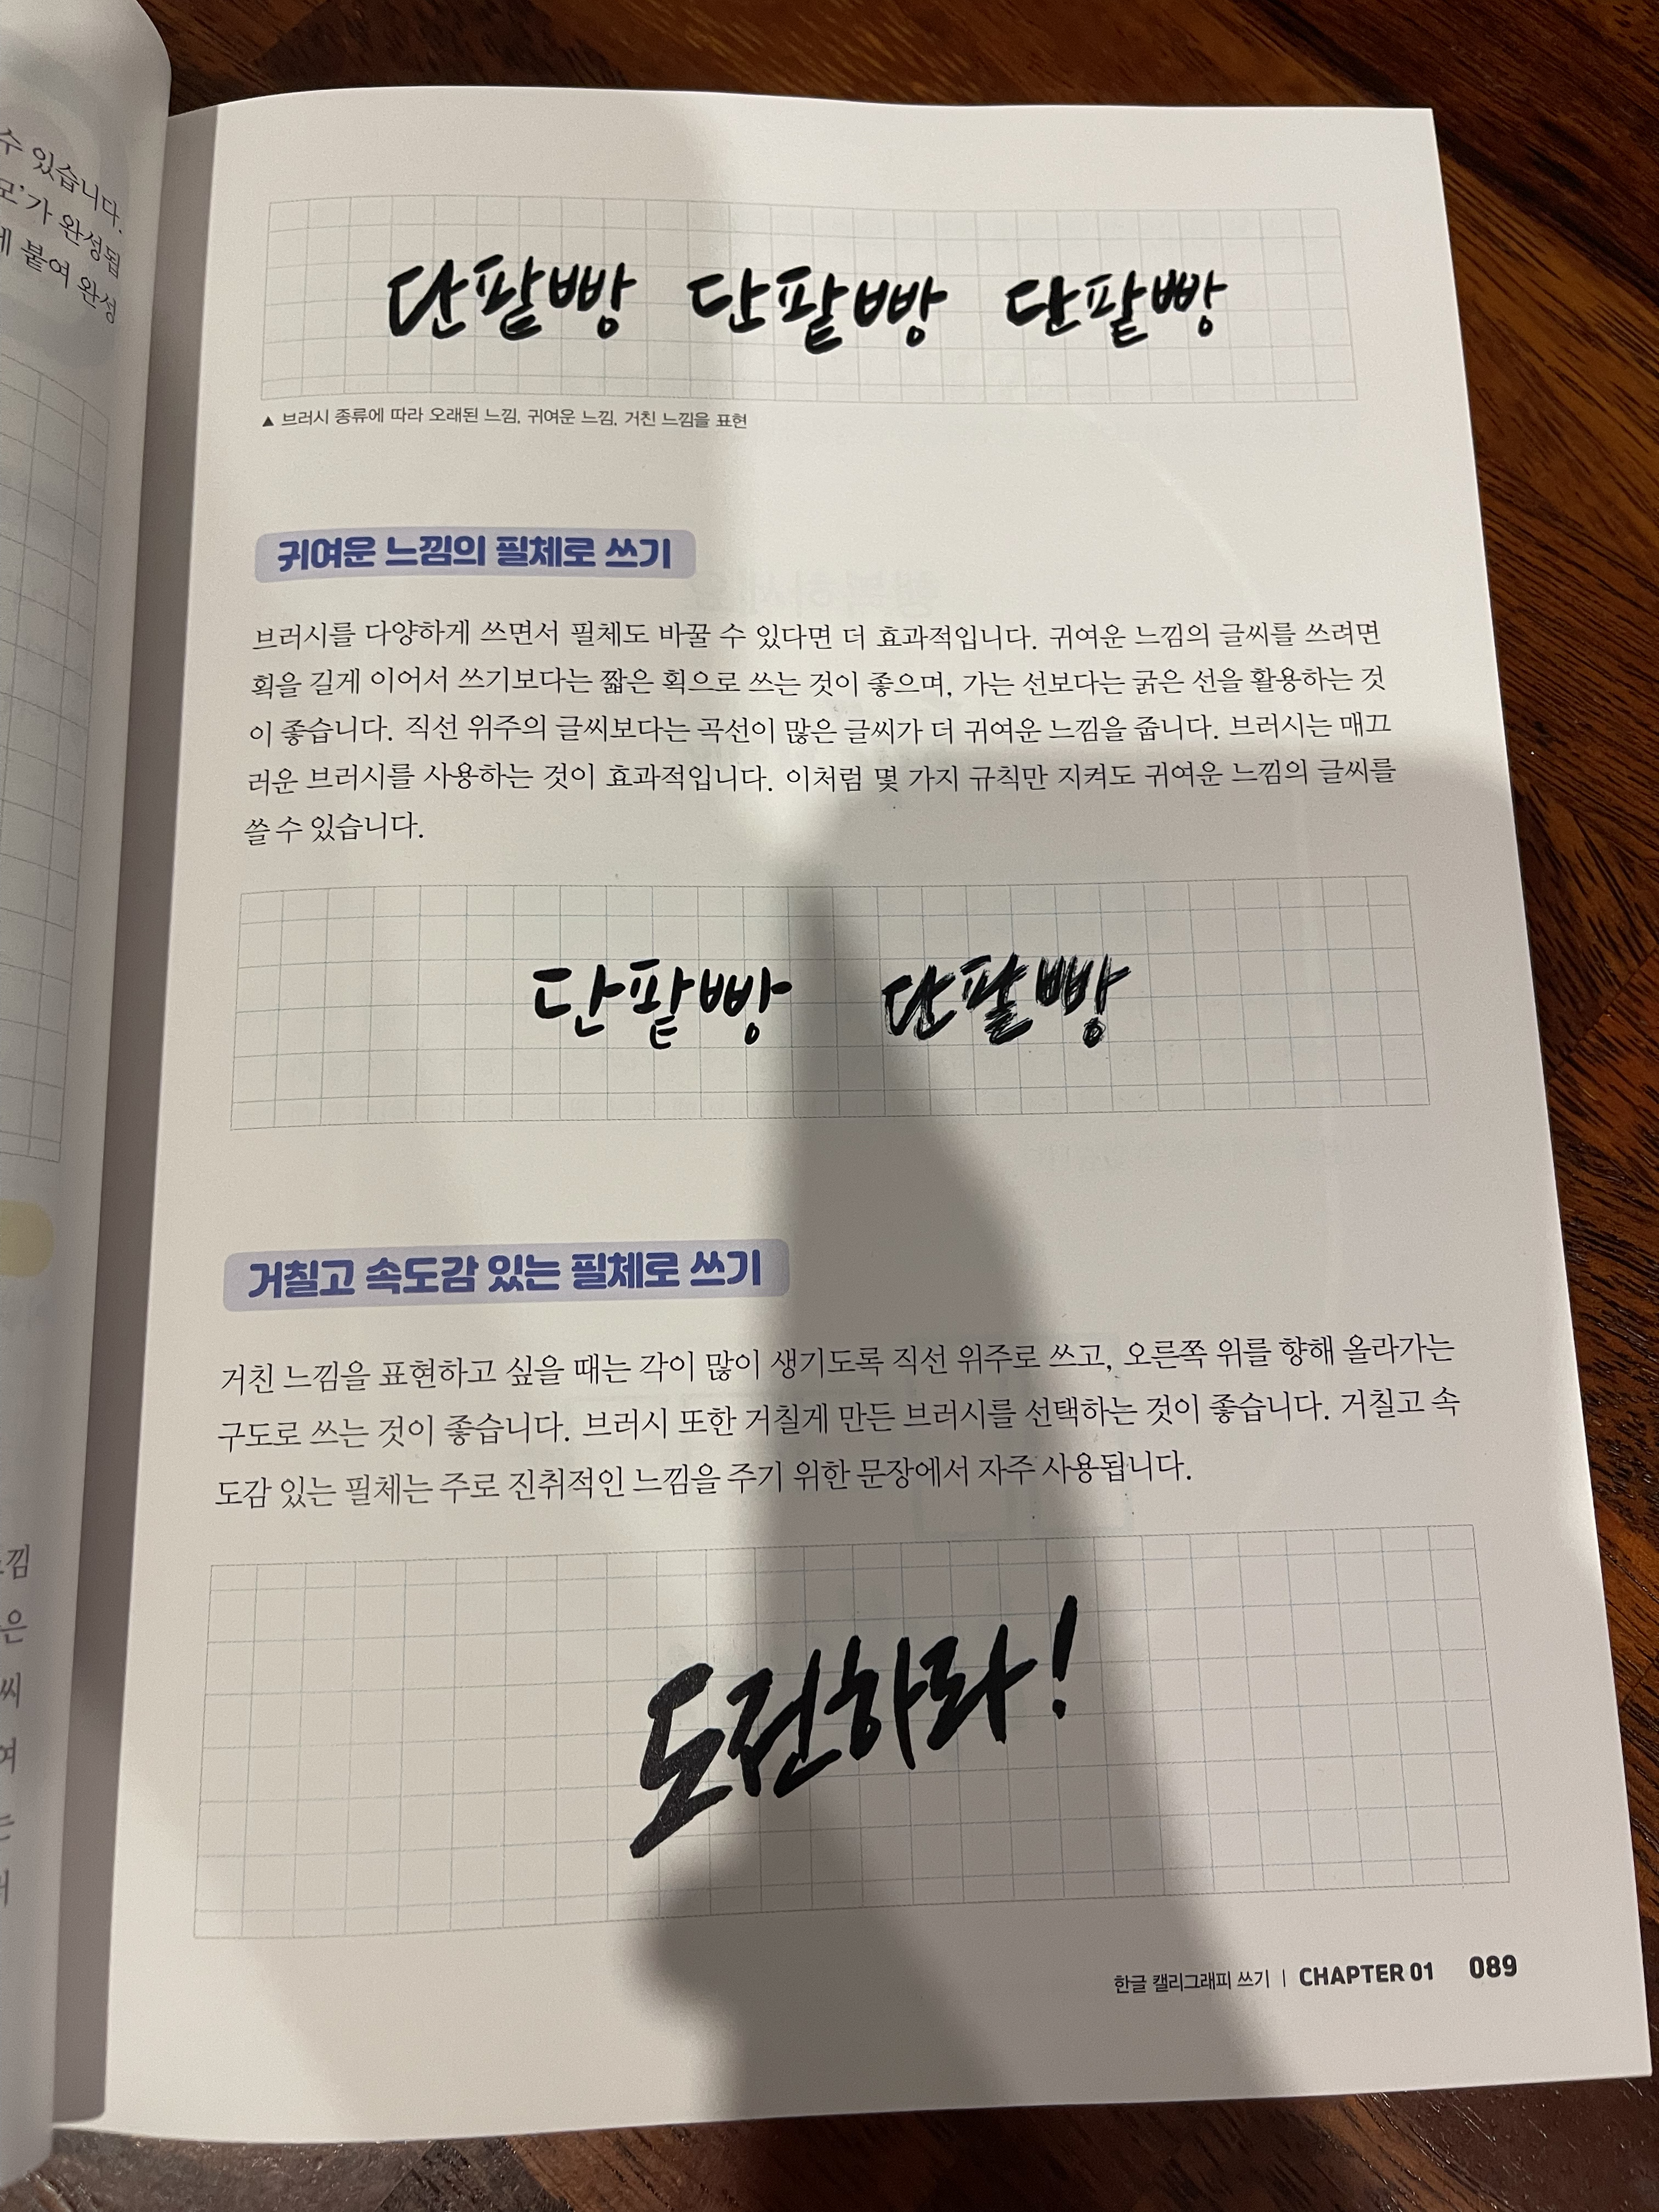 수 있습니다.
가 완성됩
붙여 완성
단팥빵 단팥빵 단팥빵
▲ 브러시 종류에 따라 오래된 느낌, 귀여운 느낌, 거친 느낌을 표현
귀여운 느낌의 필체로 쓰기
브러시를 다양하게 쓰면서 필체도 바꿀 수 있다면 더 효과적입니다. 귀여운 느낌의 글씨를 쓰려면
획을 길게 이어서 쓰기보다는 짧은 획으로 쓰는 것이 좋으며, 가는 선보다는 굵은 선을 활용하는 것
이 좋습니다. 직선 위주의 글씨보다는 곡선이 많은 글씨가 더 귀여운 느낌을 줍니다. 브러시는 매끄
러운 브러시를 사용하는 것이 효과적입니다. 이처럼 몇 가지 규칙만 지켜도 귀여운 느낌의 글씨를
쓸 수 있습니다.
단팥빵 단팥빵
거칠고 속도감 있는 필체로 쓰기
거친 느낌을 표현하고 싶을 때는 각이 많이 생기도록 직선 위주로 쓰고, 오른쪽 위를 향해 올라가는
구도로 쓰는 것이 좋습니다. 브러시 또한 거칠게 만든 브러시를 선택하는 것이 좋습니다. 거칠고 속
도감 있는 필체는 주로 진취적인 느낌을 주기 위한 문장에서 자주 사용됩니다.
도전하라!
한글 캘리그래피 쓰기 | CHAPTER 01 089